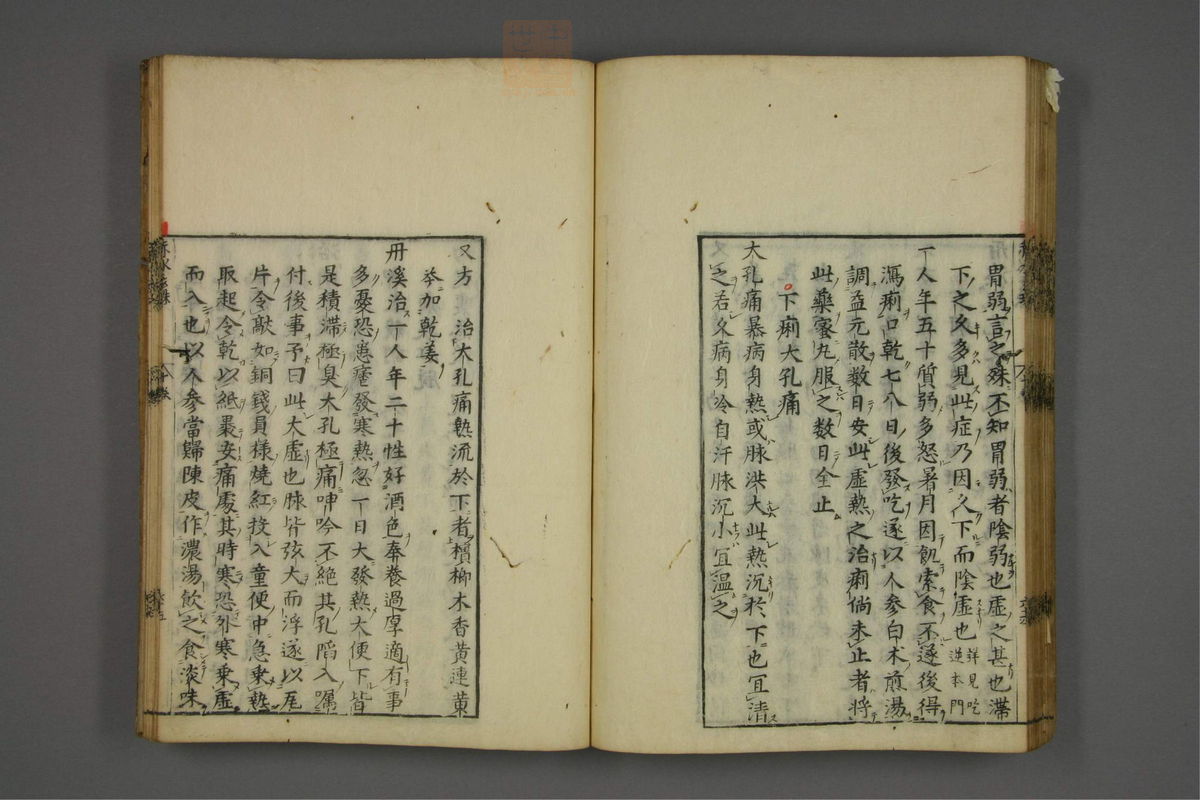 胃弱言之殊不知胃弱者陰弱也虛之甚也滯
下之久多見此症乃因久下而陰虛也詳見吃逆本門
一人年五十質弱多怒暑月因飢索食不遂後得
瀉痢口乾七八日後發吃遂以人參白朮煎湯
調益元散數日安此虛熱之治痢倘未止者將
此藥蜜丸服之数日全止
下痢大孔痛
大孔痛暴病身熱或脉洪大此熱沉於下也宜清
之若久病身冷自汗脉沉小宜溫之
又方 治大孔痛熱流於下者檳榔木香黃連黃
芩加乾姜
丹溪治一人年二十性好酒色奉養過厚適有事
多憂恐患瘧發寒熱忽一日大發熱大便下皆
是積滯極臭大孔極痛呻吟不絕其孔陷入囑
付後事予曰此大虛也脉皆弦大而浮遂以瓦
片令敲如銅錢員樣燒紅投入童便中急乗熱
取起令乾以紙裹安痛處其時寒恐外寒乗虛
而入也以人參當歸陳皮作濃湯飲之食淡味